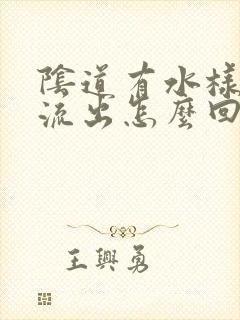 陰道有水樣
流出怎麼回
王興勇